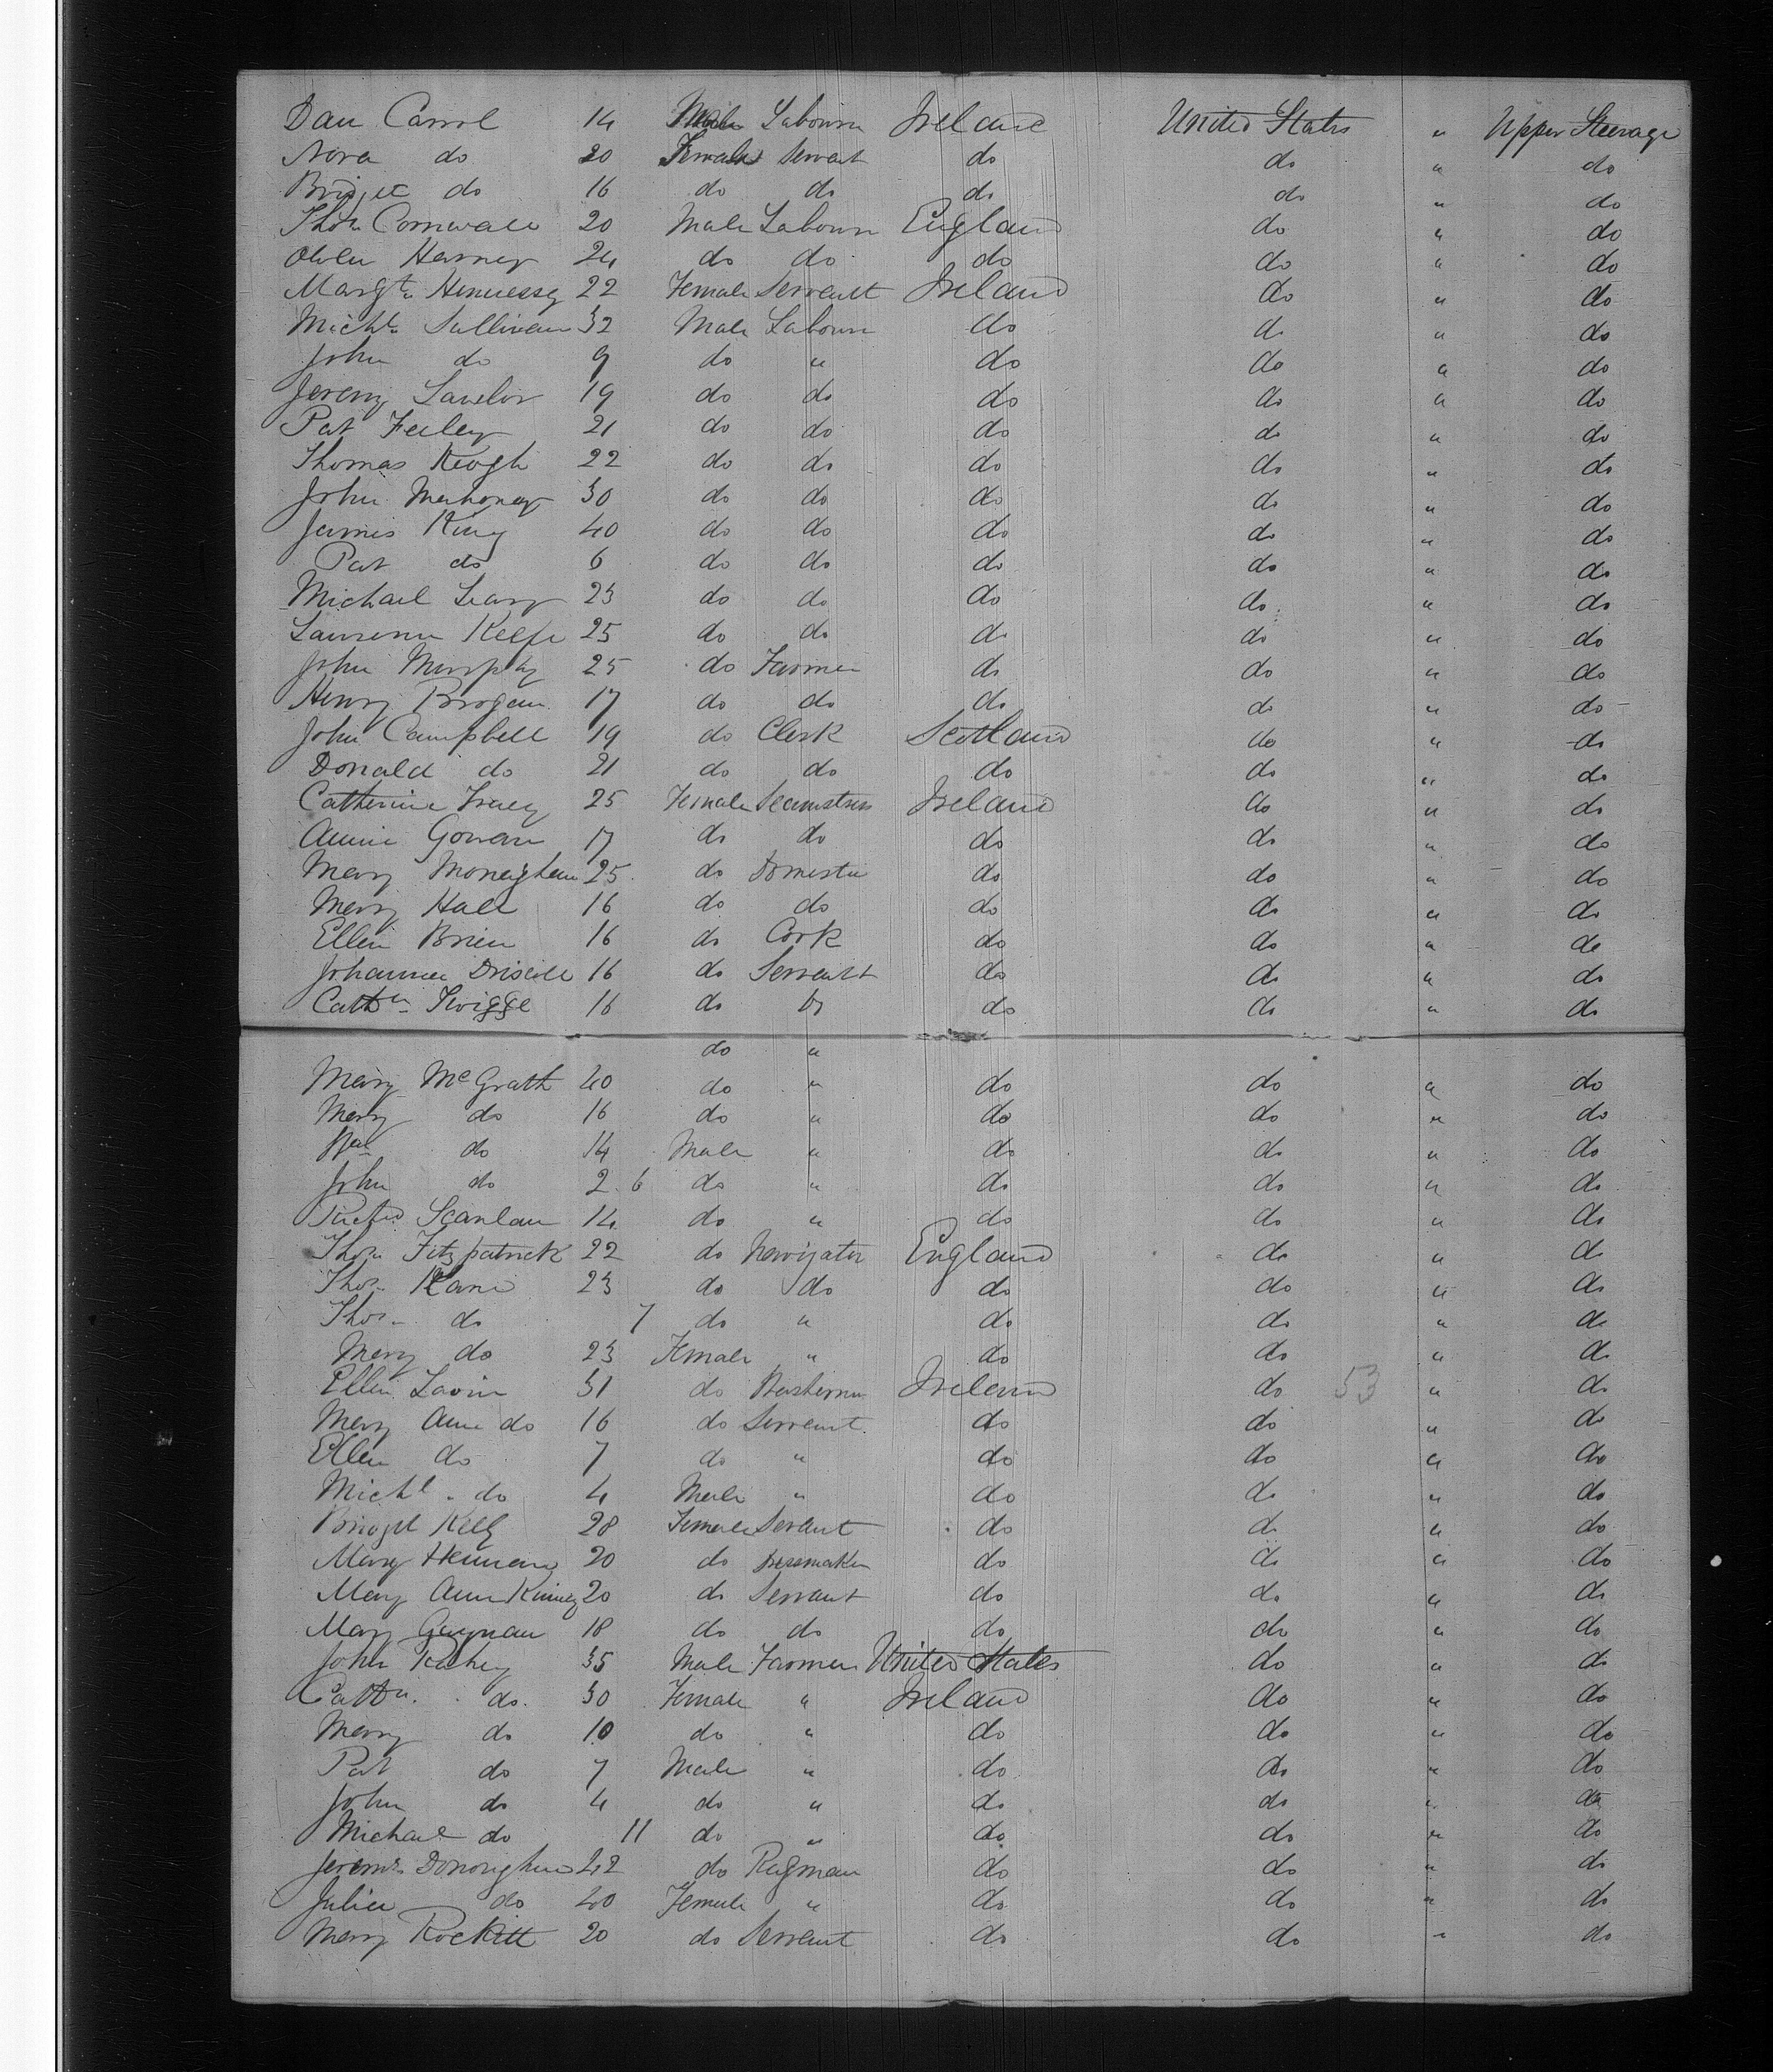 Dan Carrol 14 Male Labourer Ireland United States " Upper Steerage
Nora do 20 Female Servant do do " do
Bridget do 16 do do do do " do
Thos Cornwall 20 Male Labourer England do " do
Owen Harney 24 do do do do " do
Margt Hennessy 22 Female Servant Ireland do " do
Michl Sullivan 32 Male Labourer do do " do
John do 9 do " do do " do
Jeremy Lawlor 19 do do do do " do
Pat Feeley 21 do do do do " do
Thomas Keogh 22 do do do do " do
John Mahoney 30 do do do do " do
James King 40 do do do do " do
Pat do 6 do do do do " do
Michael Leary 23 do do do do " do
Laurence Keefe 25 do do do do " do
John Murphy 25 do Farmer do do " do
Henry Brogan 17 do do do do " do
John Campbell 19 do Clerk Scotland do " do
Donald do 21 do do do do " do
Catherine Tracey 25 Female Seamstress Ireland do " do
Annie Gowan 17 do do do do " do
Mary Monaghan 25 do Domestic do do " do
Mary Hall 16 do do do do " do
Ellen Brien 16 do Cook do do " do
Johanna Driscoll 16 do Servant do do " do
Cathn Twigge 16 do do do do " do
do "
Mary McGrath 40 do " do do " do
Mary do 16 do " do do " do
Wm do 14 Male " do do " do
John do 2 6 do " do do " do
Richd Scanlan 14 do " do do " do
Thos Fitzpatrick 22 do Navigator England do " do
Thos Kane 23 do do do do " do
Thos do 7 do " do do " do
Mary do 23 Female " do do " do
Ellen Lavin 31 do Ireland do 53 " do
Mary Ann do 16 do Servant do do " do
Ellen do 7 do " do do " do
Michl do 4 Male " do do " do
Bridget Kelly 28 Female Servant do do " do
Mary Heenan 20 do Dressmaker do do " do
Mary Ann Kinney 20 do Servant do do " do
Mary Gaynan 18 do do do do " do
John Fahey 35 Male Farmer United States do " do
Cathn do 30 Female " Ireland do " do
Mary do 10 do " do do " do
Pat do 7 Male " do do " do
John do 4 do " do do " do
Michael do 11 do " do do " do
Jeremh Donoughue 42 do Ragman do do " do
Julia do 40 Female " do do " do
Mary Rockett 20 do Servant do do " do